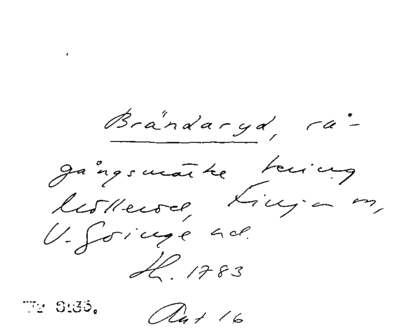 Brändaryd, rå-
gångsmärke kring
Mölleröd, Finja sn,
V. Göinge hd.
Hl. 1783
Akt 16